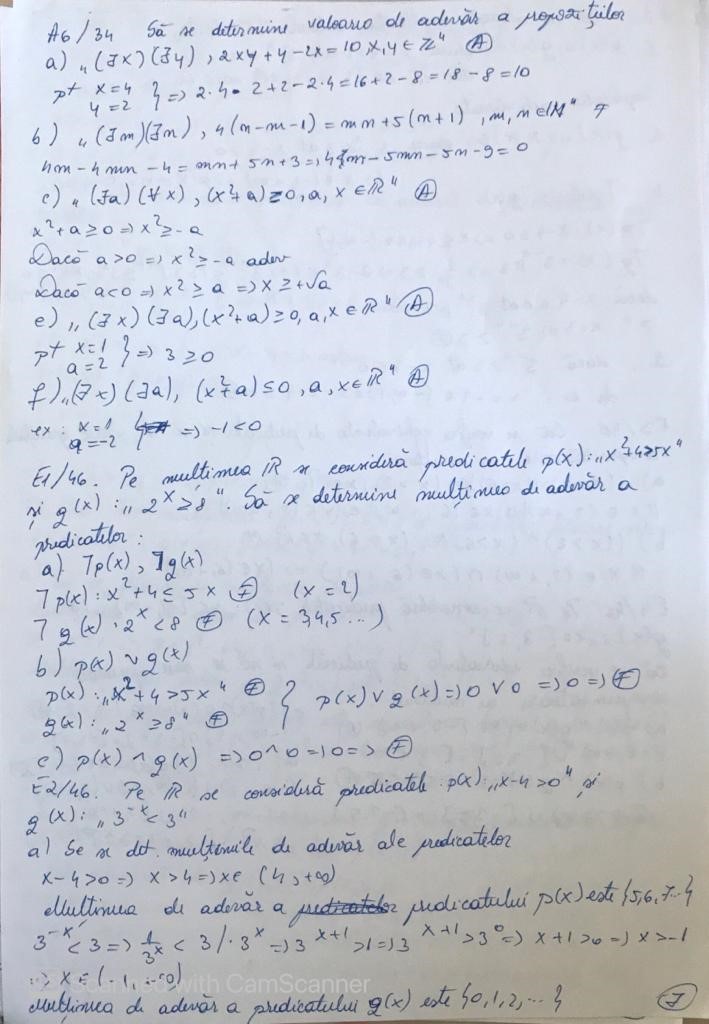 A6/34 Să se determine valoarea de adevăr a propozițiilor
a) „(∃x)(∃y), 2xy+y-2x=10, x,y∈ℤ" Ⓐ
pt x=4
y=2 } => 2·4·2+2-2·4=16+2-8=18-8=10
b) „(∃m)(∃n), 4(n-m-1)=mn+5(n+1), m,n∈ℕ" F
4m-4mn-4=mn+5n+3=> 4m-5mn-5n-9=0
c) „(∃a)(∀x), (x²+a)≥0, a,x∈ℝ" Ⓐ
x²+a≥0 => x²≥-a
Dacă a>0 => x²≥-a adev
Dacă a<0 => x²≥a => x≥+√a
e) „(∃x)(∃a), (x²+a)≥0, a,x∈ℝ" Ⓐ
pt x=1
a=2 } => 3≥0
f) „(∃x)(∃a), (x²+a)≤0, a,x∈ℝ" Ⓐ
ex: x=1
a=-2 } => -1<0
E1/46. Pe mulțimea ℝ se consideră predicatele p(x): „x²+4>5x"
și g(x): „2ˣ≥8". Să se determine mulțimea de adevăr a
predicatelor:
a) ⅂p(x), ⅂g(x)
⅂p(x): x²+4≤5x Ⓕ (x=2)
⅂g(x): 2ˣ<8 Ⓕ (x=3,4,5...)
b) p(x) ∨ g(x)
p(x): „x²+4>5x" Ⓕ
g(x): „2ˣ≥8" Ⓕ } p(x)∨g(x)=>0∨0 =>0=>Ⓕ
c) p(x) ∧ g(x) =>0∧0=>0=>Ⓕ
E2/46. Pe ℝ se consideră predicatele p(x): „x-4>0" și
g(x): „3⁻ˣ<3"
a) Se se det. mulțimile de adevăr ale predicatelor
x-4>0=> x>4=>x∈(4,+∞)
Mulțimea de adevăr a predicatului p(x) este {5,6,7...}
3⁻ˣ<3=> 1/3ˣ < 3 /·3ˣ =>3ˣ⁺¹>1=>3ˣ⁺¹>3⁰=> x+1>0=> x>-1
=> x∈(-1,+∞)
Scanned with CamScanner
Mulțimea de adevăr a predicatului g(x) este {0,1,2,...}